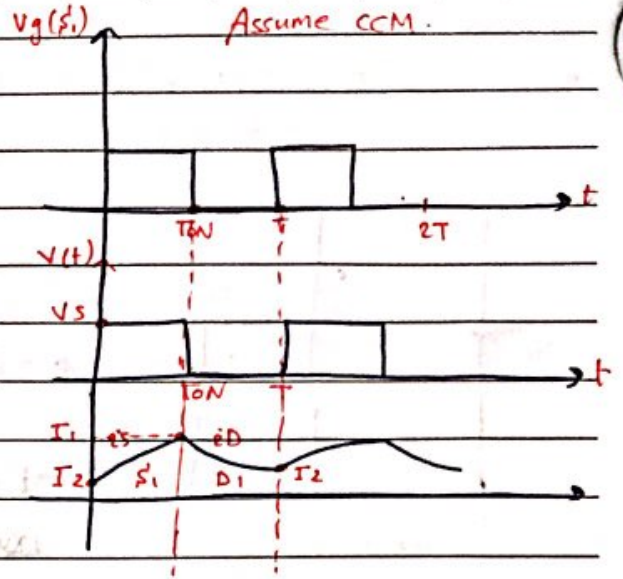 Vg(S1) Assume CCM.
t
TON T 2T
V(t)
Vs
t
TON T
I1 is iD
I2 S1 D1 I2